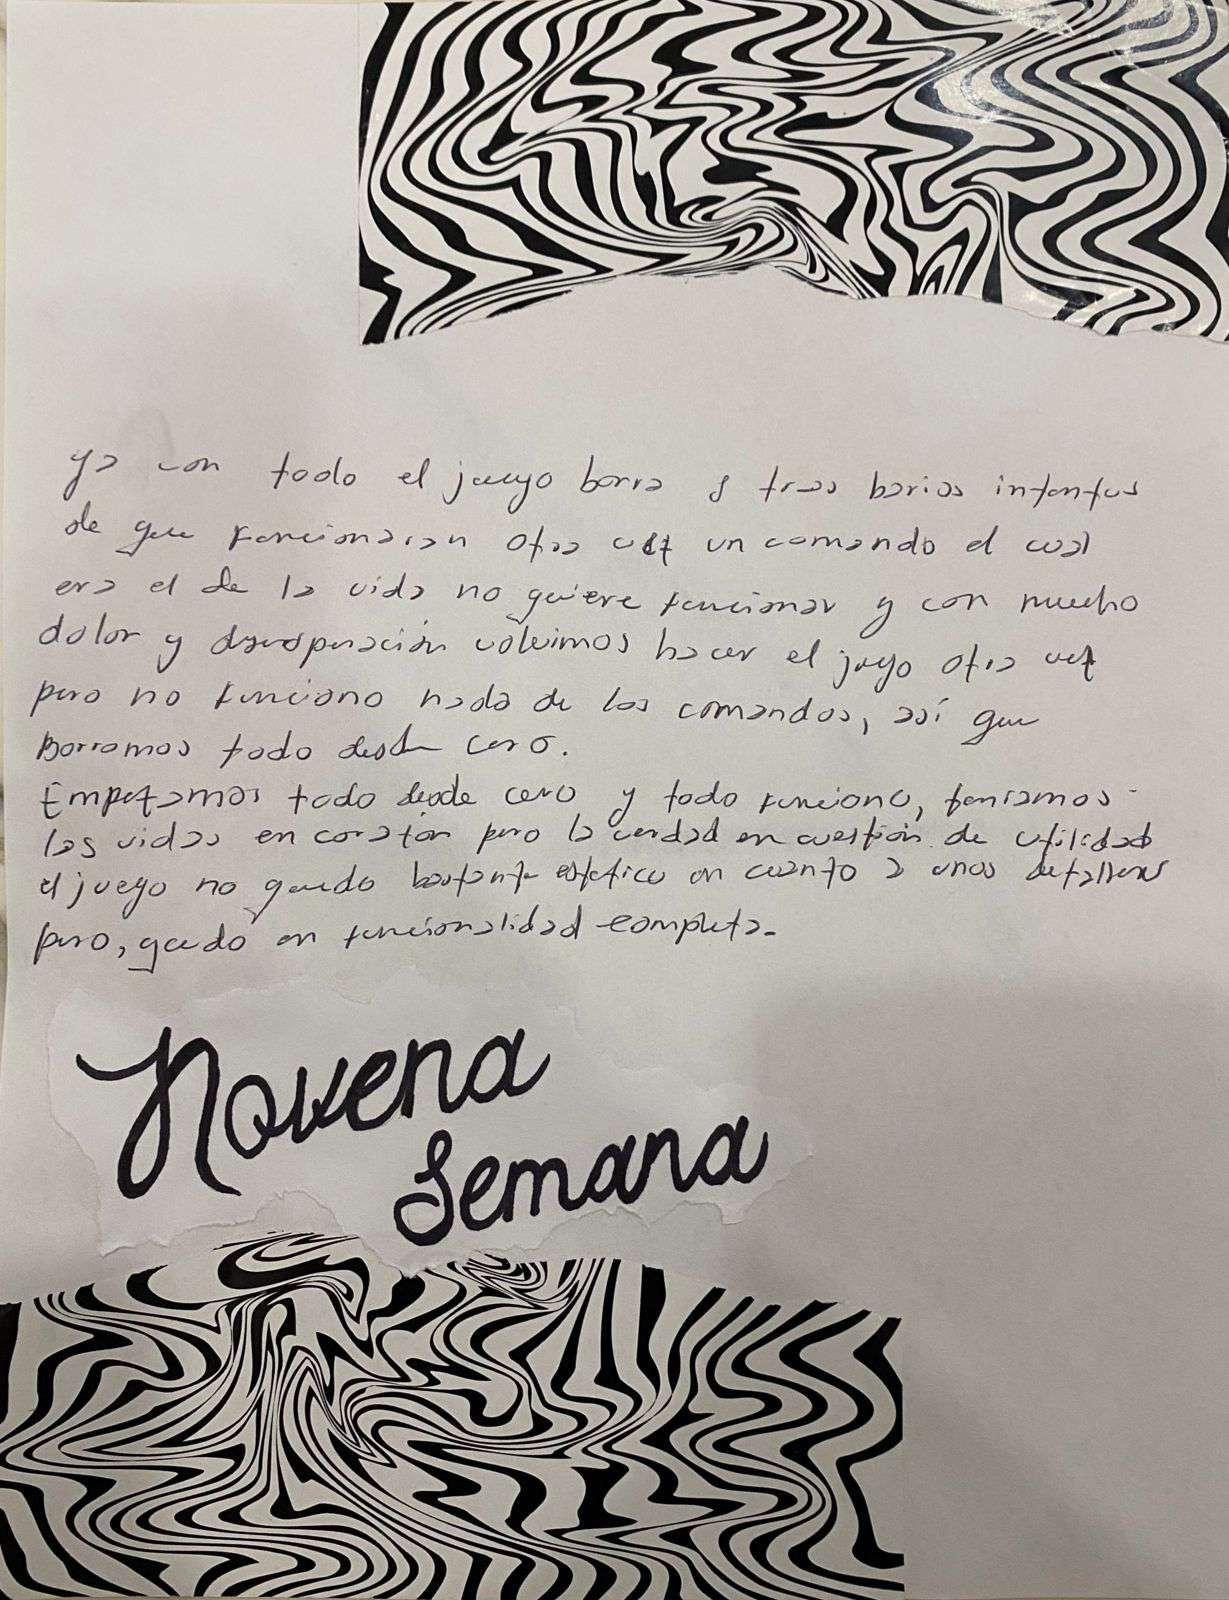 ya con todo el juego borra y tras barios intentos
de que funcionaran otra vez un comando el cual
era el de la vida no quiere funcionar y con mucho
dolor y desesperación volvimos hacer el juego otra vez
pero no funciono nada de los comandos, así que
Borramos todo desde cero.
Empezamos todo desde cero y todo funciono, teniamos
las vidas en corazón pero la verdad en cuestión de utilidad
el juego no quedo bastante estetico en cuanto a unos detalles
pero, quedo en funcionalidad completa.
Novena
Semana